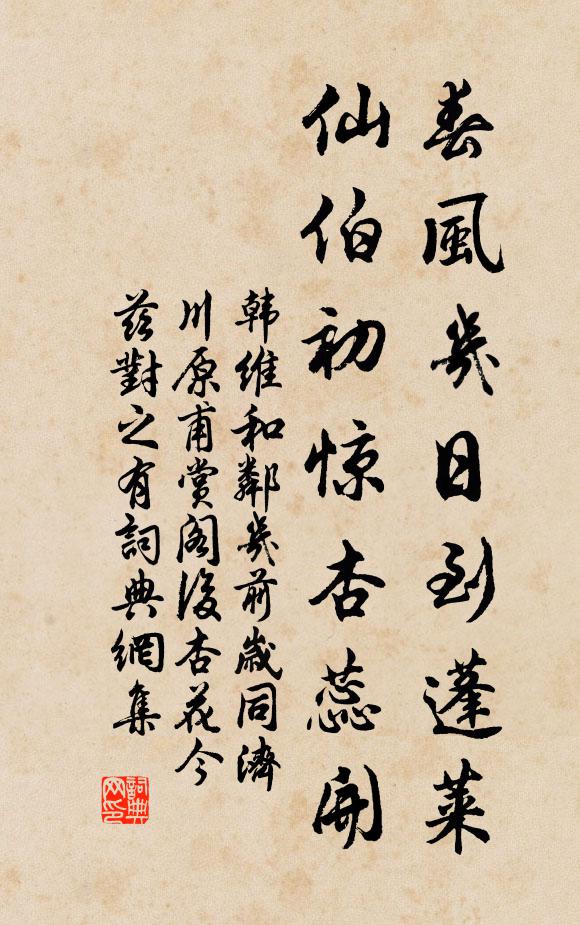 春風幾日到蓬萊
仙伯初惊杏蕊開
韩維和鄰幾前歲同濟
川原甫賞阁後杏花今
茲對之有詞典網集
詞典
网印